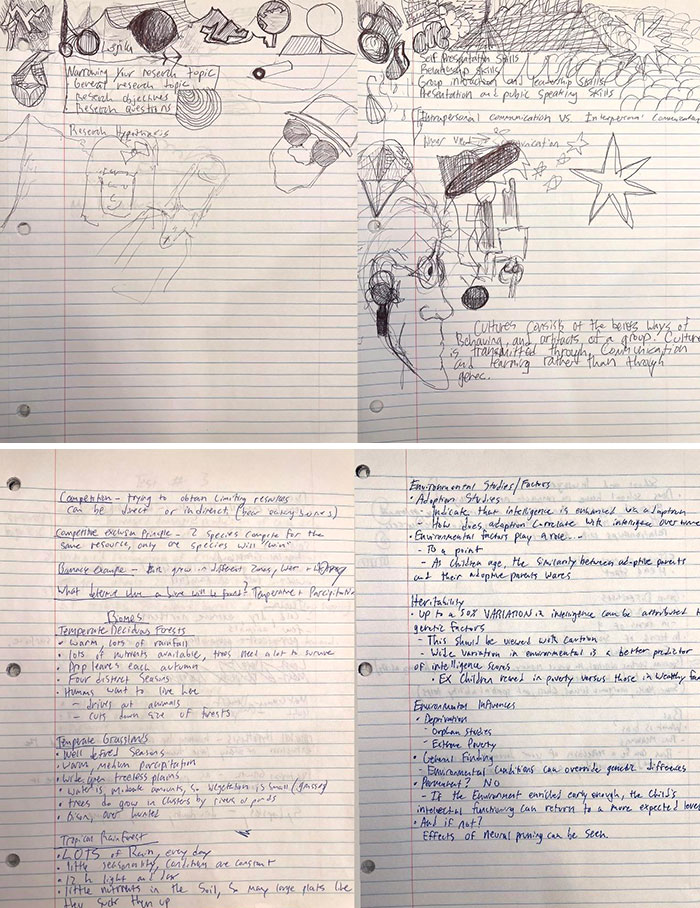 Narrowing your reserch topic
General reserch topic
Reserch objectives
Reserch questions
Reserch Hypothesis
Self Presentation Skills
Relationship Skills
Group interaction and leadership skills
Presentation and public speaking skills
Intrapersonal communication VS Interpersonal Communication
Cultures consist of the beliefs ways of
Behaving and artifacts of a group. Culture
is transmitted through communication
and learning rather than through
genec.
Competition - trying to obtain limiting resources
can be direct or indirect
Competitive exclusion Principle - 2 species compete for the
same resource, only one species will "win"
Barnacles example - Both grow in different zones,
What determines where a biome will be found? Temperature + Parcipitation
Biomes
Temperate Decidous Forests
• Warm, lots of rainfall
• lots of nutrients available, trees need a lot to survive
• Drop leaves each autumn
• Four distinct Seasons
• Humans want to live here
- drives out animals
- cuts down size of forests
Temperate Grasslands
• Well defined Seasons
• Warm, medium parcipitation
• Wide open treeless plains
• Water is moderate amounts, so vegetation is small (grasses)
• Trees do grow in clusters by rivers or ponds
• Bison, over hunted
Tropical Rainforest
• LOTS of Rain, every day
• little seasonality, Conditions are constant
• 12 h light and dark
• little nutrients in the Soil, So many large plants like
they suck them up
Environmental Studies/Factors
• Adoption Studies
- Indicate that intelligence is enhanced via adoption
- How does adoption correlate with inteligence over time
• Environmental factors play a role...
- To a point
- As children age, the similarity between adoptive parents
and their adoptive parents wares
Heritability
• Up to a 50% VARIATION in intelligence can be attributed to
genetic factors
- This should be viewed with caution
- Wide variation in environmental is a better predictor
of intelligence scores
• Ex Children reared in poverty versus those in wealthy fam
Environmental Influences
• Deprivation
- Orphan studies
- Extreme Poverty
• General Finding
- Environmental Conditions can override genetic diffences
• Permanent? NO
- If the Environment enriched early enough, the child's
intelectual functioning can return to a more expected level
• And if not?
Effects of neural pruning can be seen